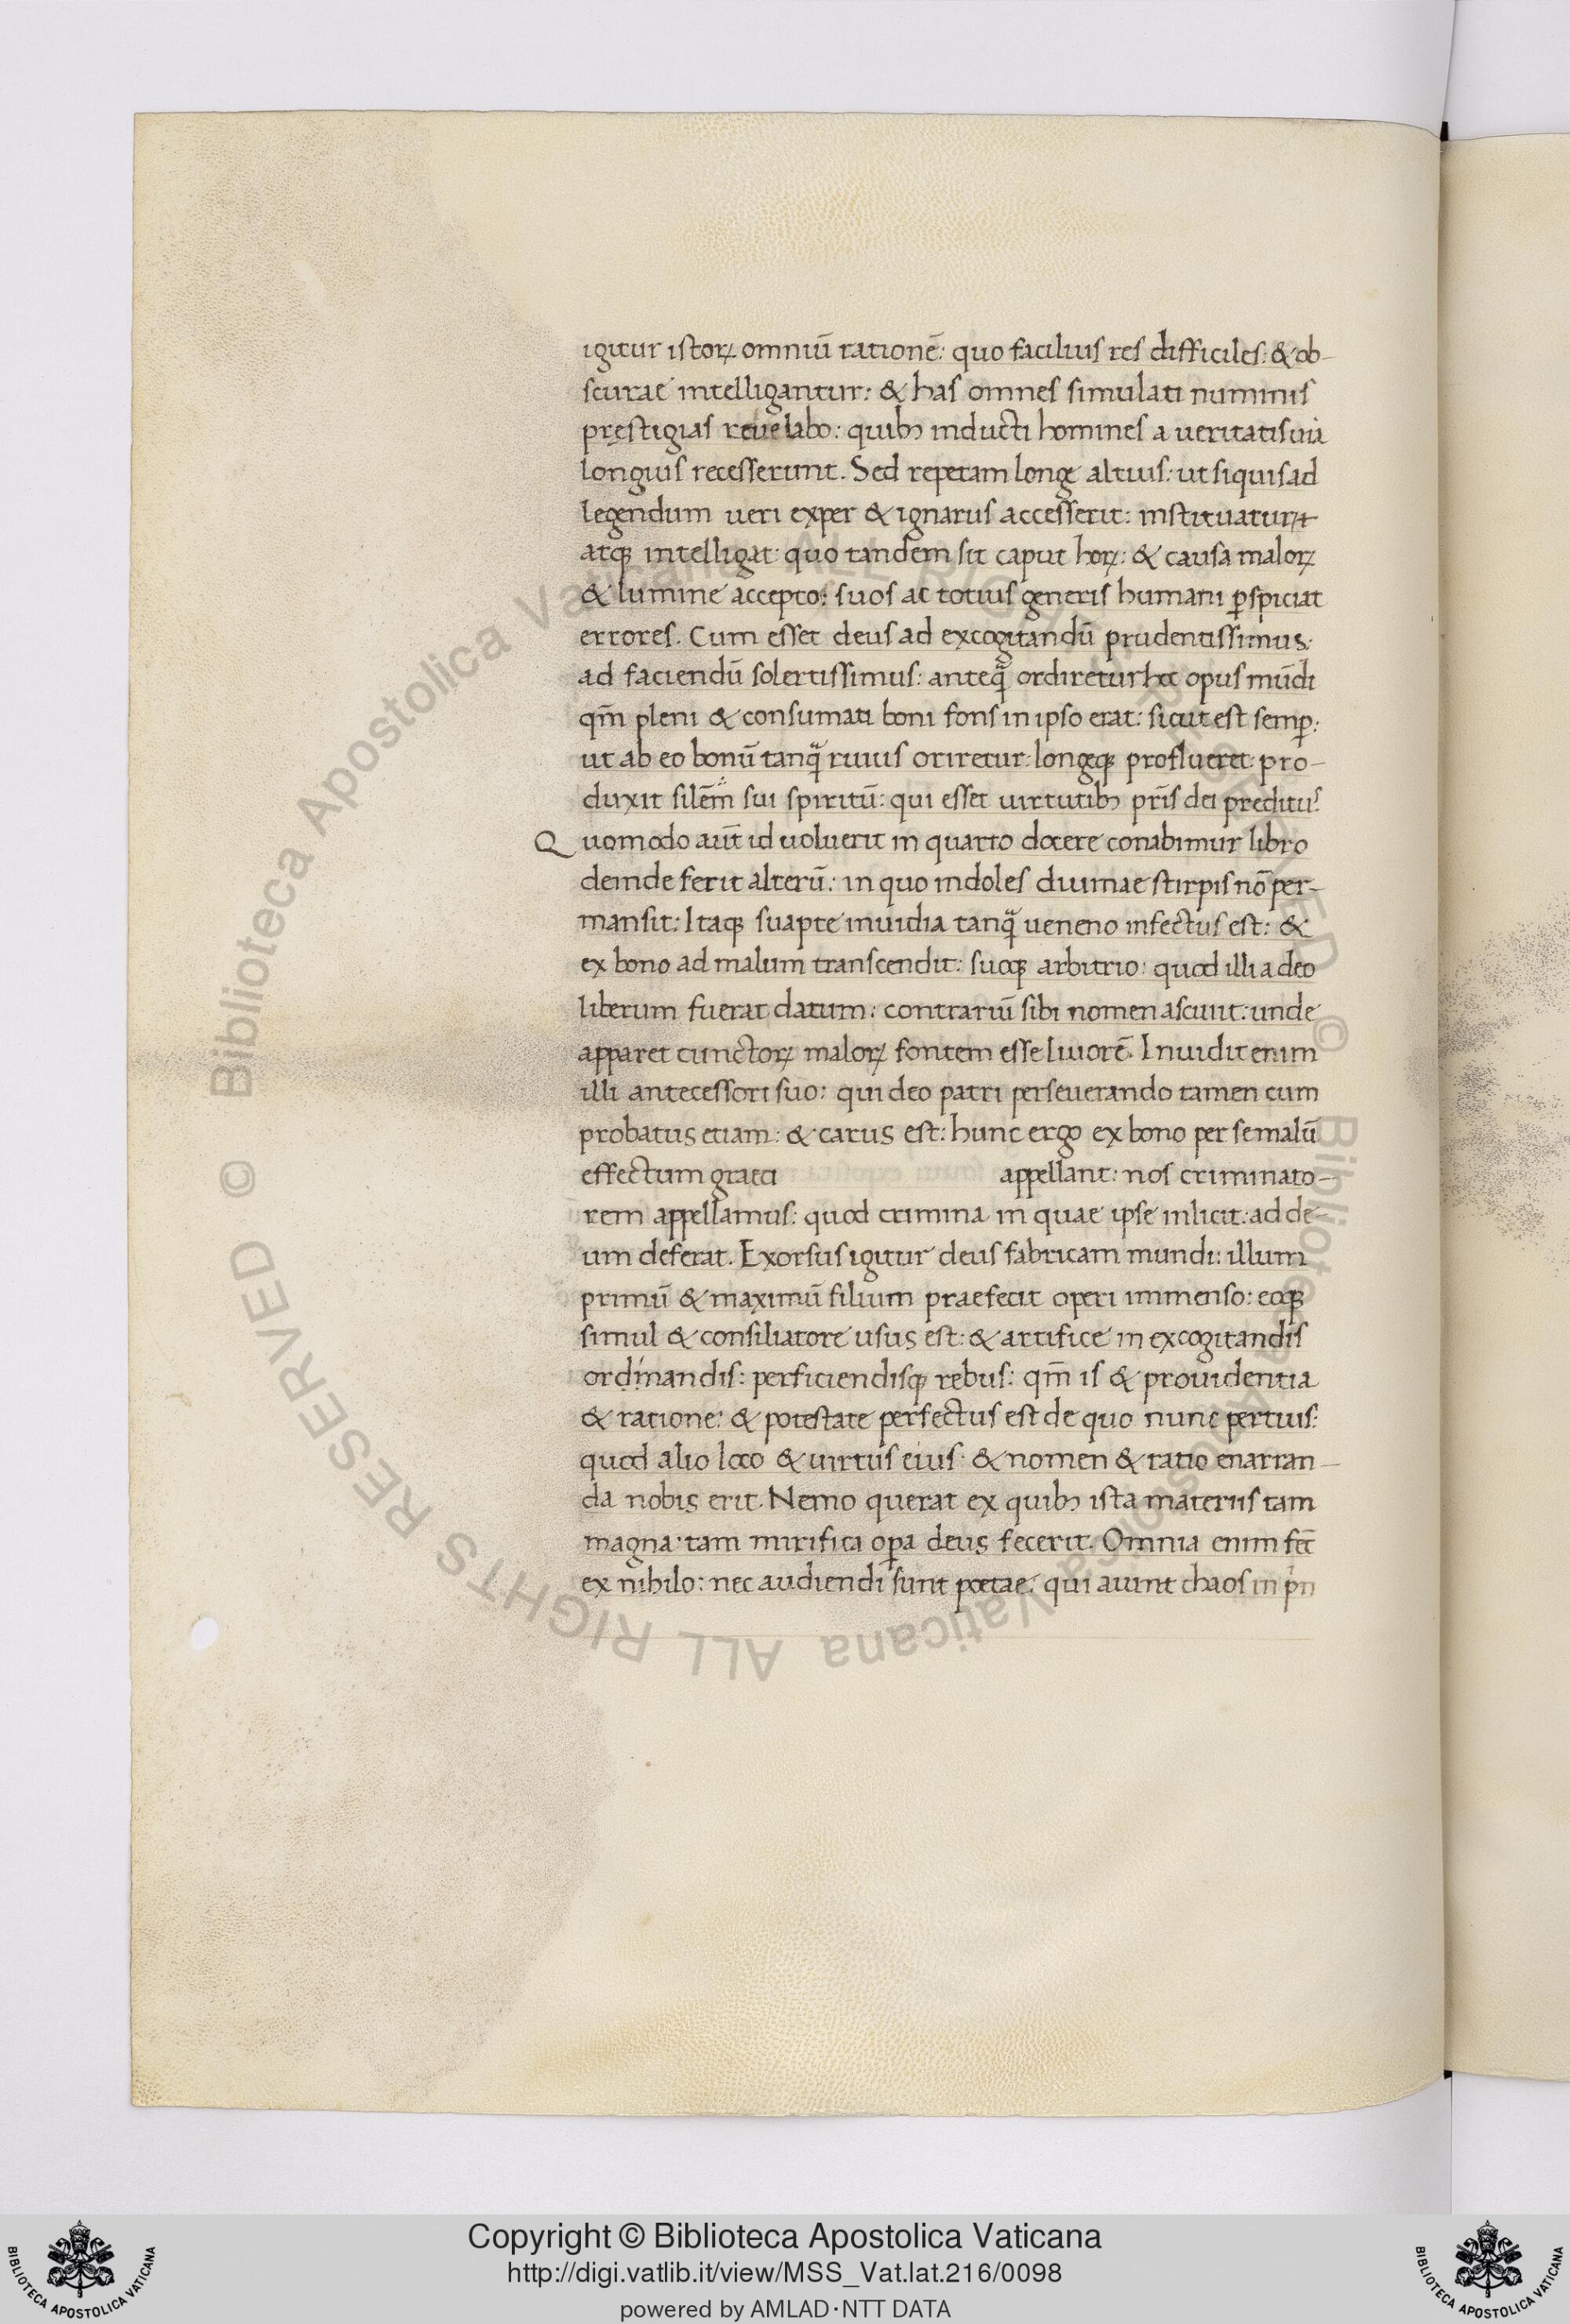 igitur istoꝝ omniū rationē: quo facilius res difficiles: & ob-
scurae intelligantur: & has omnes simulati numinis
pręstigias reuelabo: quibꝫ inducti homines a ueritatis uia
longius recesserunt. Sed repetam longe altius: ut siquis ad
legendum ueri exper & ignarus accesserit: instituatur
atqꝫ intelligat: quo tandem sit caput hoꝝ: & causa maloꝝ
& lumine accepto: suos ac totius generis humani ꝑspiciat
errores. Cum esset deus ad excogitandū prudentissimus:
ad faciendū solertissimus: anteq̄ ordiretur hoc opus mūdi
qm̄ pleni & consumati boni fons in ipso erat: sicut est semꝑ:
ut ab eo bonū tanq̄ riuus oriretur: longeqꝫ proflueret: pro-
duxit silēm sui spiritū: qui esset uirtutibꝫ pr̄is dei preditus
Quomodo aūt id uoluerit in quarto docere conabimur libro
deinde fecit alterū: in quo indoles diuinae stirpis nō per-
mansit: Itaqꝫ suapte inuidia tanq̄ ueneno infectus est: &
ex bono ad malum transcendit: suoqꝫ arbitrio: quod illi a deo
liberum fuerat datum: contrariū sibi nomen asciuit: unde
apparet cunctoꝝ maloꝝ fontem esse liuorē. Inuidit enim
illi antecessori suo: qui deo patri perseuerando tamen cum
probatus etiam: & carus est: hunc ergo ex bono per se malū
effectum graeci appellant: nos criminato-
rem appellamus: quod crimina in quae ipse inlicit: ad de-
um deferat. Exorsus igitur deus fabricam mundi: illum
primū & maximū filium praefecit operi immenso: eoqꝫ
simul & consiliatore usus est: & artifice in excogitandis
ordinandis: perficiendisqꝫ rebus: qm̄ is & prouidentia
& ratione: & potestate perfectus est de quo nunc
quod alio loco & uirtus eius: & nomen & ratio enarran-
da nobis erit. Nemo querat ex quibꝫ ista materiis tam
magna: tam mirifica oꝑa deus fecerit. Omnia enim fec̄
ex nihilo: nec audiendi sunt poetae: qui aiunt chaos in
Copyright © Biblioteca Apostolica Vaticana
http://digi.vatlib.it/view/MSS_Vat.lat.216/0098
powered by AMLAD·NTT DATA
BIBLIOTECA APOSTOLICA VATICANA
BIBLIOTECA APOSTOLICA VATICANA
© Biblioteca Apostolica Vaticana ALL RIGHTS RESERVED © Biblioteca Apostolica Vaticana ALL RIGHTS RESERVED